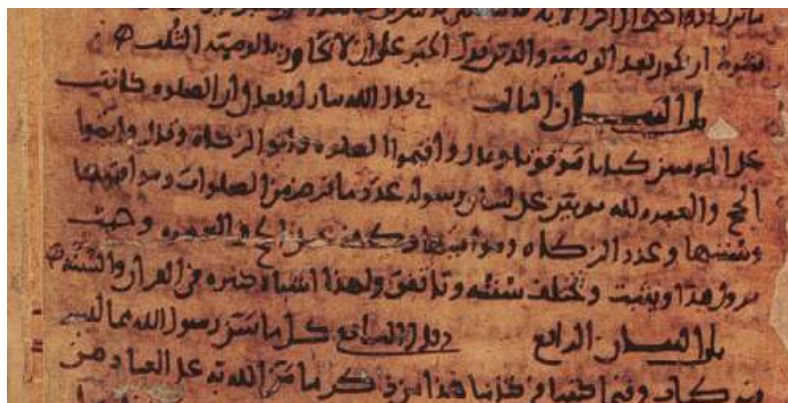 أن تكون بعد الوصيه والدين فدل الخبر على ان لا يجاوز بالوصيه الثُلث
باب البيان الثالث قال الله تبارك وتعالى ان الصلوه كانت
على المومنين كتابا مَوقوتا وقال واقيموا الصلوه واتوا الزكاه وقال واتموا
الحج والعمره لله ثم بين على لسان رسوله عدد ما فرض من الصلوات ومواقيتها
وسننها وعدد الزكاه ومواقيتها وكيف عمل الحج والعمره وحيث
يزول هذا ويثبت وتختلف سننه وتاتفق ولهذا اشباه كثيره في القران والسُنَّه
باب البيان الرابع قال الشافعي كل ما سَنَّ رسول الله مما ليس
فيه كتاب وفيما كتبنا في كتابنا هذا من ذكر ما مَنَّ الله به على العباد من